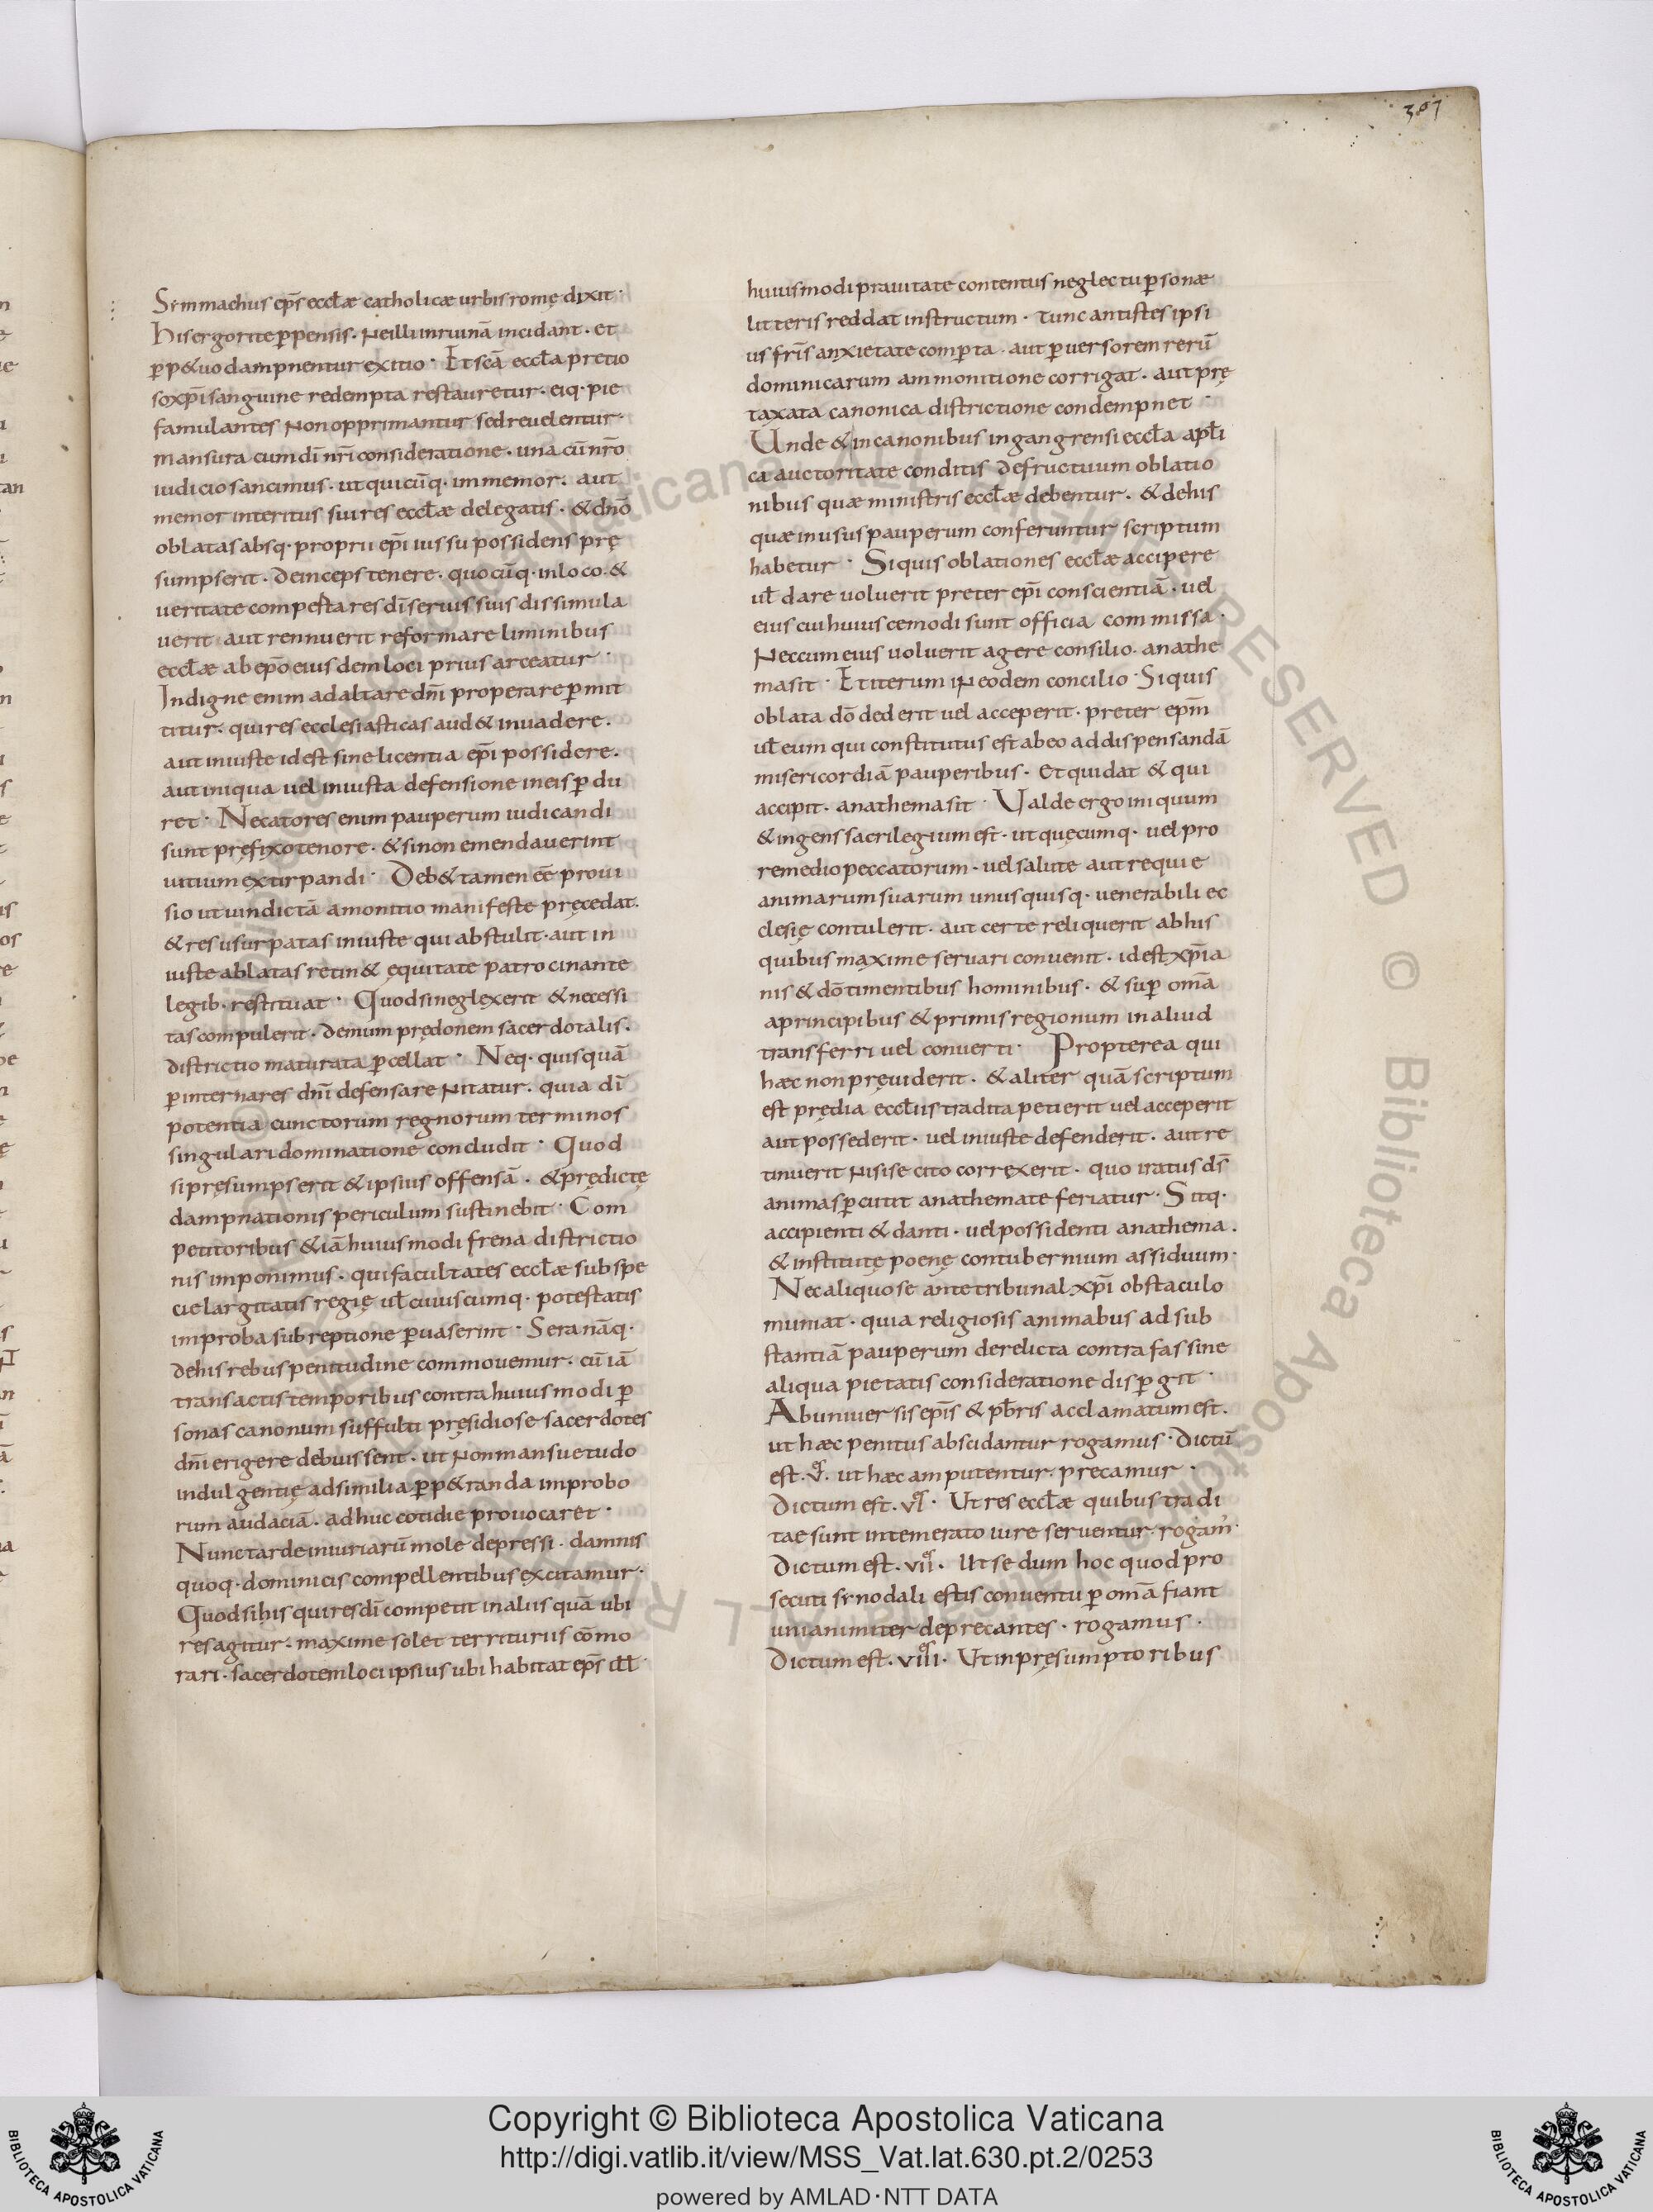 307
Simmachus ep̅s eccl̅æ catholicæ urbis romę dixit ·
His ergo rite p̲pensis · Ne illi in ruinā incidant · et
p̲p&uo dampnentur exitio · Et sc̅ā eccl̅a pretio
so xp̅i sanguine redempta restauretur · eiq· pie
famulantes Non opprimantur sed reuelentur ·
mansura cum dī nr̅i consideratione · una cū nr̅o
iudicio sancimus · ut quicūq· immemor · aut
memor interitus sui res eccl̅æ delegatis · & dn̅o
oblatas absq· proprii ep̅i iussu possidens prę
sumpserit · deinceps tenere · quocūq· in loco · &
ueritate comperta res dī seruis suis dissimula
uerit aut rennuerit reformare liminibus
eccl̅æ ab ep̅o eiusdem loci prius arceatur ·
Indigne enim ad altare dn̅i properare p̲mit
titur · qui res ecclesiasticas aud& inuadere ·
aut iniuste id est sine licentia ep̅i possidere ·
aut iniqua uel iniusta defensione in eis p̲du
ret · Necatores enim pauperum iudicandi
sunt pręfixo tenore · & si non emendauerint
uitium extirpandi · Deb& tamen eē proui
sio ut uindictā amonitio manifeste pręcedat ·
& res usurpatas iniuste qui abstulit · aut in
iuste ablatas retin& ęquitate patrocinante
legib· restituat · Quod si neglexerit & necessi
tas compulerit · demum prędonem sacerdotalis ·
districtio maturata p̲cellat · Neq· quisquā
p̲internares dn̅i defensare Nitatur · quia dī
potentia cunctorum regnorum terminos
singulari dominatione concludit · Quod
si pręsumpserit & ipsius offensā · & prędictę
dampnationis periculum sustinebit · Com
petitoribus &iā huiusmodi frena districtio
nis imponimus · qui facultates eccl̅æ sub spe
cie largitatis regię ul̅ cuiuscumq· potestatis
improba subreptione p̲uaserint · Sera nāq·
de his rebus penitudine commouemur · cū iā
transactis temporibus contra huiusmodi p̲
sonas canonum suffulti pręsidio se sacerdotes
dn̅i erigere debuissent · ut Non mansuetudo
indulgentię ad similia p̲p&randa improbo
rum audaciā · adhuc cotidie prouocaret ·
Nunc tarde iniuriarū mole depressi · damnis
quoq· dominicis compellentibus excitamur ·
Quod si his qui res dī competit in aliis quā ubi
res agitur · maxime solet territuriis cōmo
rari · sacerdotem loci ipsius ubi habitat ep̅s ill̅
huiusmodi prauitate contentus neglectu p̲sonæ
litteris reddat instructum · Tunc antistes ipsi
us fr̅is anxietate comp̲ta · aut p̲uersorem rerū
dominicarum ammonitione corrigat · aut prę
taxata canonica districtione condempnet ·
Unde & in canonibus in gangrensi eccl̅a apl̅i
ca auctoritate conditis de fructuum oblatio
nibus quæ ministris eccl̅æ debentur · & de his
quæ in usus pauperum conferuntur scriptum
habetur · Si quis oblationes eccl̅æ accipere
ul̅ dare uoluerit preter ep̅i conscientiā · uel
eius cui huiuscemodi sunt officia commissa ·
Nec cum eius uoluerit agere consilio · anathe
ma sit · Et iterum iN eodem concilio · Si quis
oblata dō dederit uel acceperit · preter ep̅m
ul̅ eum qui constitutus est ab eo ad dispensandā
misericordiā pauperibus · Et qui dat & qui
accipit · anathema sit · Valde ergo iniquum
& ingens sacrilegium est · ut quęcumq· uel pro
remedio peccatorum · uel salute aut requie
animarum suarum unusquisq· uenerabili ec
clesię contulerit · aut certe reliquerit ab his
quibus maxime seruari conuenit · id est xp̅ia
nis & dō timentibus hominibus · & sup̲ omā
a principibus & primis regionum in aliud
transferri uel conuerti · Propterea qui
hæc non pręuiderit · & aliter quā scriptum
est prędia eccl̅iis tradita petierit uel acceperit
aut possederit · uel iniuste defenderit · aut re
tinuerit Nisi se cito correxerit · quo iratus ds̅
animas p̲cutit anathemate feriatur · Sitq·
accipienti & danti · uel possidenti anathema ·
& institutę poenę contubernium assiduum ·
Nec aliquo se ante tribunal xp̅i obstaculo
muniat · quia religiosis animabus ad sub
stantiā pauperum derelicta contra fas sine
aliqua pietatis consideratione disp̲git ·
Ab uniuersis ep̅is & pb̅ris acclamatum est ·
ut hæc penitus abscidantur rogamus · dictū
est · v · ut hæc amputentur precamur ·
Dictum est · vi · Ut res eccl̅æ quibus tradi
tae sunt intemerato iure seruentur rogam̅ ·
Dictum est · vii · Ut se dum hoc quod pro
secuti sinodali estis conuentu p̲ omā fiant
unianimiter deprecantes · rogamus ·
Dictum est · viii · Ut in pręsumptoribus
Copyright © Biblioteca Apostolica Vaticana
http://digi.vatlib.it/view/MSS_Vat.lat.630.pt.2/0253
powered by AMLAD·NTT DATA
BIBLIOTECA APOSTOLICA VATICANA
BIBLIOTECA APOSTOLICA VATICANA